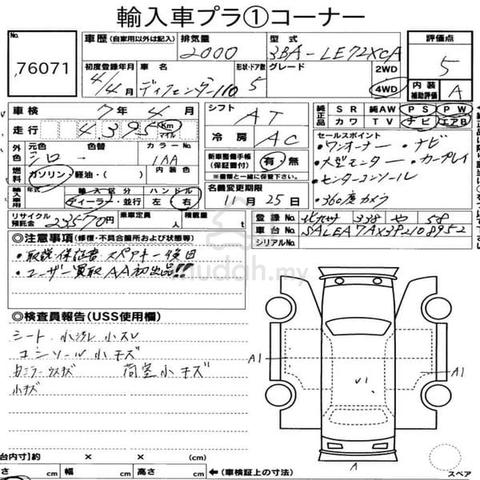 輸入車プラ①コーナー
76071
車歴 (自家用以外は記入) 排気量 2000 型式 3BA-LE72XCA 評価点 5
初度登録年月 4/4月 ディフェンダー110 形状・ドア数 5 グレード 2WD 4WD 内装 補助評価 A
車検 7年4月 シフト AT 純正品 SR 純AW PS PW
カワ TV ナビ エアB
走行 43950 Km マイル 冷房 AC
セールスポイント
・ワンオーナー ・ナビ
・大型モニター ・カープレイ
・センターコンソール
・360度カメラ
外色 元色 シロ 色替 カラーNo. 1AA
燃料 ガソリン・軽油・( ) 新車整備手帳 (保証書付) 有・無
輸入車用 年式 輸入区分 ディーラー・並行 ハンドル 左・右 名義変更期限 11月25日
リサイクル預託金 23570円 乗車定員 名 積載量 t
登録No. 338 や 58
車台No. SALEA7AX3P2108952
シリアルNo.
◎注意事項 (修復・不具合箇所および状態等)
・取説 保証書 スペアキー 後日
・ユーザー買取 AA初出品!!
mudah.my
◎検査員報告 (USS使用欄)
シート 小汚レ 小スレ
コンソール 小キズ
荷室小キズ
小キズ
A1
A1
V1
A
スペア
台内寸)約 × × (cm)
さ cm 幅 cm 高さ cm ←(車検証上の寸法)